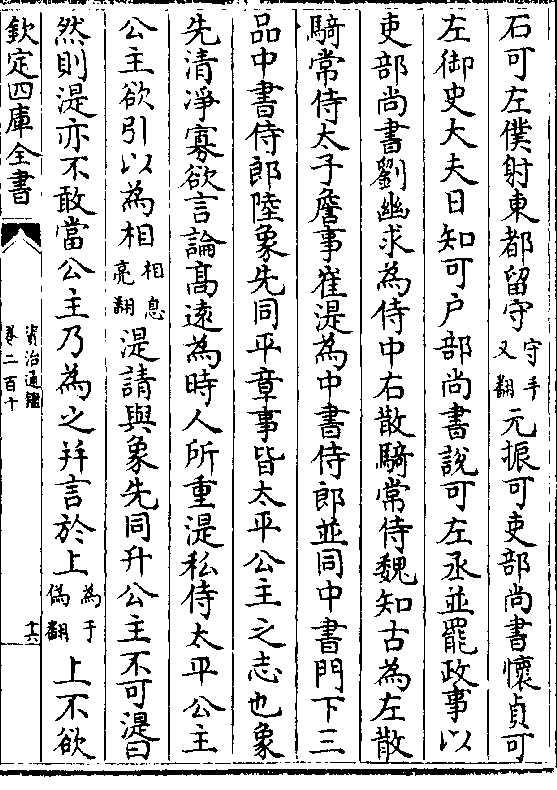 石可左僕射東都留守守手又翻元振可吏部尚書懷貞可
左御史大夫日知可户部尚書説可左丞並罷政事以
吏部尚書劉幽求為侍中右散騎常侍魏知古為左散
騎常侍太子詹事崔湜為中書侍郎並同中書門下三
品中書侍郎陸象先同平章事皆太平公主之志也象
先清凈寡欲言論髙逺為時人所重湜私侍太平公主
公主欲引以為相相息亮翻湜請與象先同升公主不可湜曰
然則湜亦不敢當公主乃為之并言於上為于偽翻上不欲
欽定四庫全書
資治通鑑
卷二百十
十六